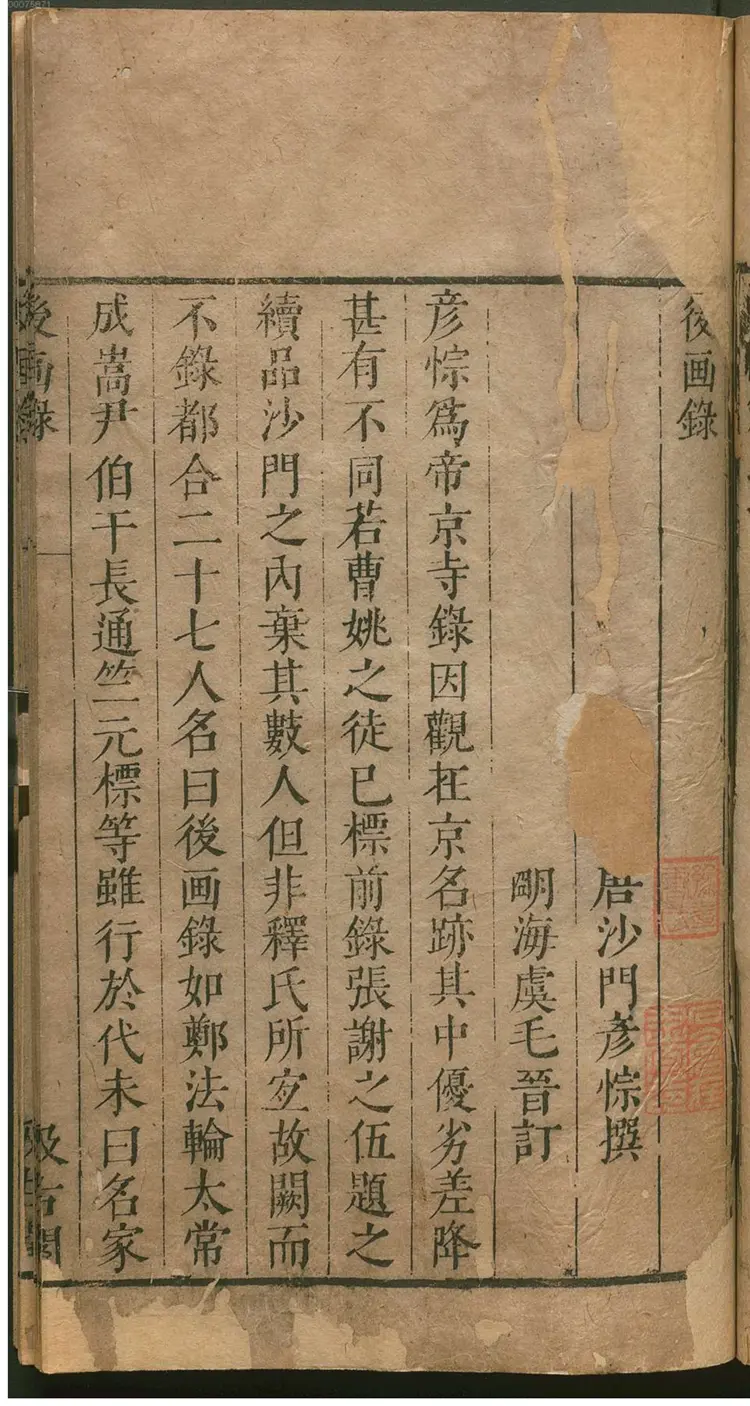 後画錄
唐沙門彥悰撰
明海虞毛晉訂
彥悰爲帝京寺錄因觀在京名跡其中優劣差降
甚有不同若曹姚之徒已標前錄張謝之伍題之
續品沙門之內棄其數人但非釋氏所宜故闕而
不錄都合二十七人名曰後画錄如鄭法輪太常
成嵩尹伯干長通竺元標等雖行於代未曰名家
後画錄
汲古閣